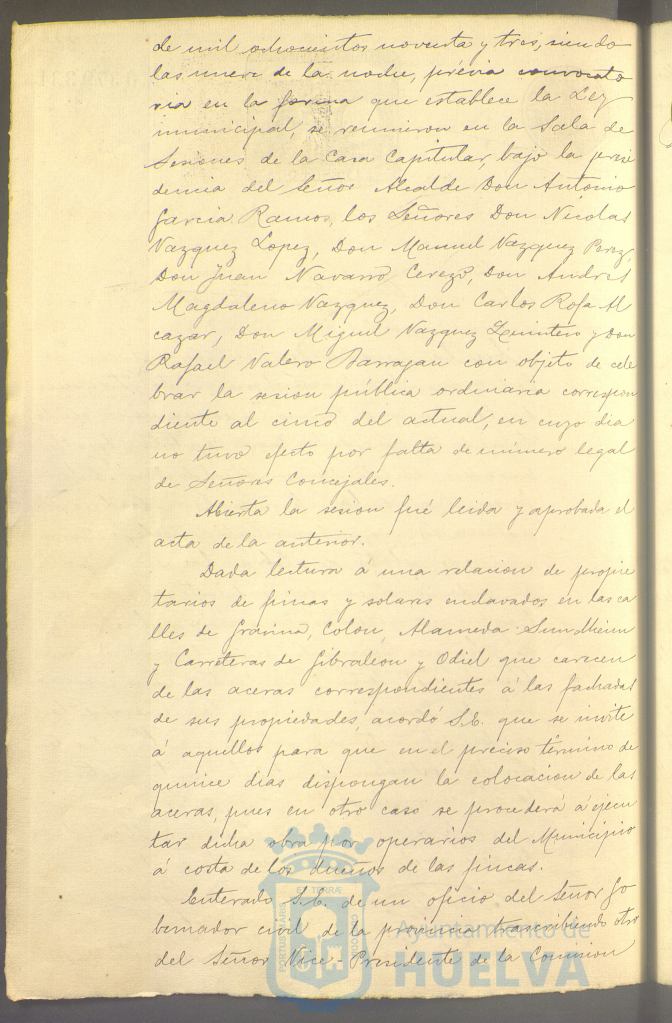 de mil ochocientos noventa y tres, siendo
las nueve de la noche, prévia convocato
ria en la forma que establece la Ley
municipal, se reunieron en la Sala de
Sesiones de la Casa Capitular, bajo la presi
dencia del Señor Alcalde Don Antonio
Garcia Ramos, los Señores Don Nicolas
Vazquez Lopez, Don Manuel Vazquez Perez,
Don Juan Navarro Cerezo, Don Andres
Magdaleno Vazquez, Don Carlos Rofa Al
cazar, Don Miguel Vazquez Quintero y Don
Rafael Valero Barragan con objeto de cele
brar la sesion pública ordinaria correspon
diente al cinco del actual, en cuyo dia
no tuvo efecto por falta de número legal
de Señores Concejales.
Abierta la sesion fué leida y aprobada el
acta de la anterior.
Dada lectura á una relacion de propie
tarios de fincas y solares enclavados en las ca
lles de Gravina, Colon, Alameda
y Carreteras de Gibraleon y Odiel que carecen
de las aceras correspondientes á las fachadas
de sus propiedades, acordó S.E. que se invite
á aquellos para que en el preciso término de
quince dias dispongan la colocacion de las
aceras, pues en otro caso se procederá á ejecu
tar dicha obra por operarios del Municipio
á costa de los dueños de las fincas.
Enterado S.E. de un oficio del Señor Go
bernador civil de la provincia trascribiendo otro
del Señor Vice-Presidente de la Comision
PORTUS MARIS
ET TERRÆ
CUSTODIA
Ayuntamiento de
HUELVA